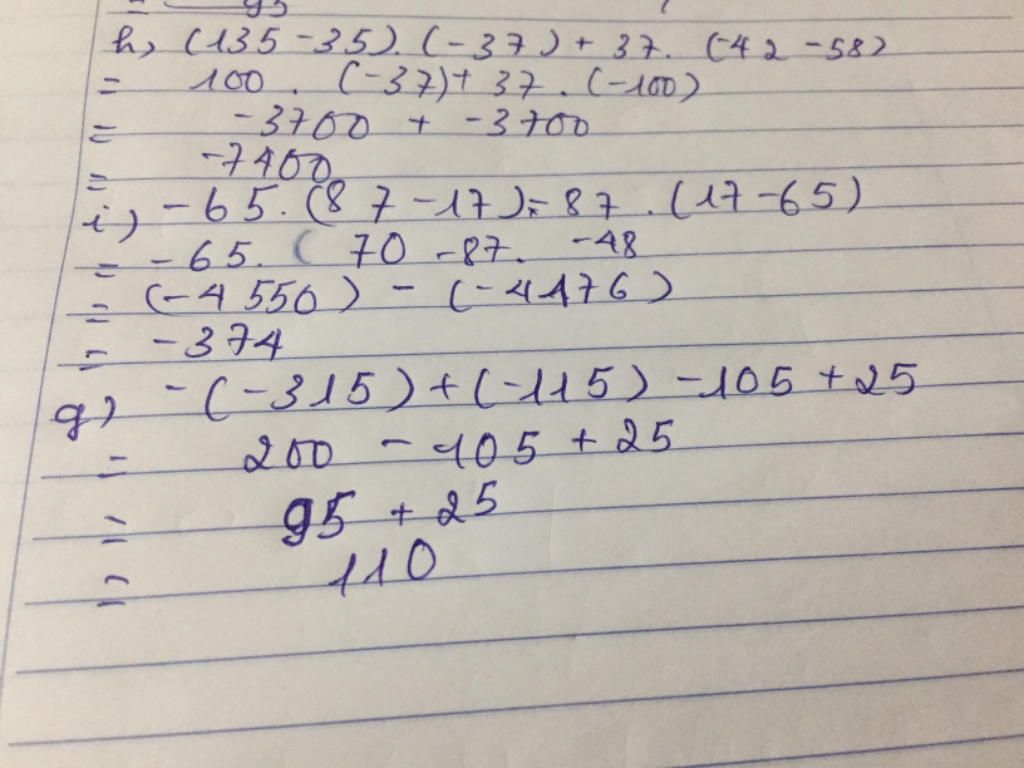 = 95
h, (135 - 35). (-37) + 37. (-42 - 58)
= 100 . (-37) + 37 . (-100)
= -3700 + -3700
= -7400
i) -65. (87 - 17) = 87 . (17 - 65)
= -65. ( 70 - 87. -48
= (-4550) - (-4176)
= -374
g) -(-315) + (-115) - 105 + 25
= 200 - 105 + 25
= 95 + 25
= 110